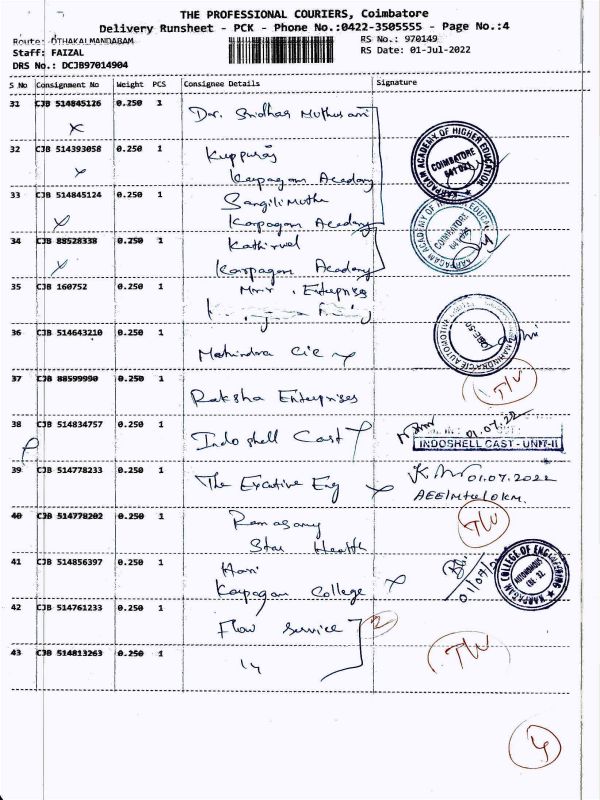 THE PROFESSIONAL COURIERS, Coimbatore
Delivery Runsheet - PCK - Phone No.:0422-3505555 - Page No.:4
Route: OTHAKALMANDABAM
RS No.: 970149
Staff: FAIZAL
RS Date: 01-Jul-2022
DRS No.: DCJB97014904
S No Consignment No Weight PCS Consignee Details Signature
31 CJB 514845126 0.250 1 Dr. Sridhar Muthusami
32 CJB 514393058 0.250 1 Kuppuraj
Karpagam Academy
KARPAGAM ACADEMY OF HIGHER EDUCATION
COIMBATORE
641 021
33 CJB 514845124 0.250 1 Sangili Muthu
Karpagam Academy
34 CJB 88528338 0.250 1 Kathirvel
Karpagam Academy
KARPAGAM ACADEMY OF HIGHER EDUCATION
COIMBATORE
35 CJB 160752 0.250 1 Enterprises
36 CJB 514643210 0.250 1 Mahindra CIE
37 CJB 88599990 0.250 1 Raksha Enterprises
38 CJB 514834757 0.250 1 Indo shell Cast
01.07.22
INDOSHELL CAST - UNIT-II
39 CJB 514778233 0.250 1 The Excutive Eng
01.07.2022
40 CJB 514778202 0.250 1 Ramasamy
Star Health
41 CJB 514856397 0.250 1 Hari
Karpagam College
KARPAGAM COLLEGE OF ENGINEERING
AUTONOMOUS
42 CJB 514761233 0.250 1 Flow Service
2
43 CJB 514813263 0.250 1
4